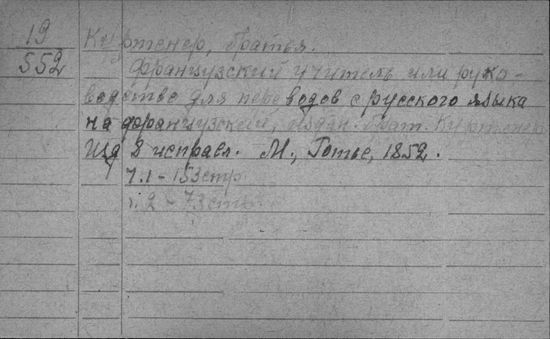 19
552
Куртенер, братья.
Французский учитель или руко-
водство для переводов с русского языка
на французский, издан. брат. Куртенер
Изд 2 исправл. М., Готье, 1852.
Ч.1 - 153 стр.
Ч.2 - 73 стр.